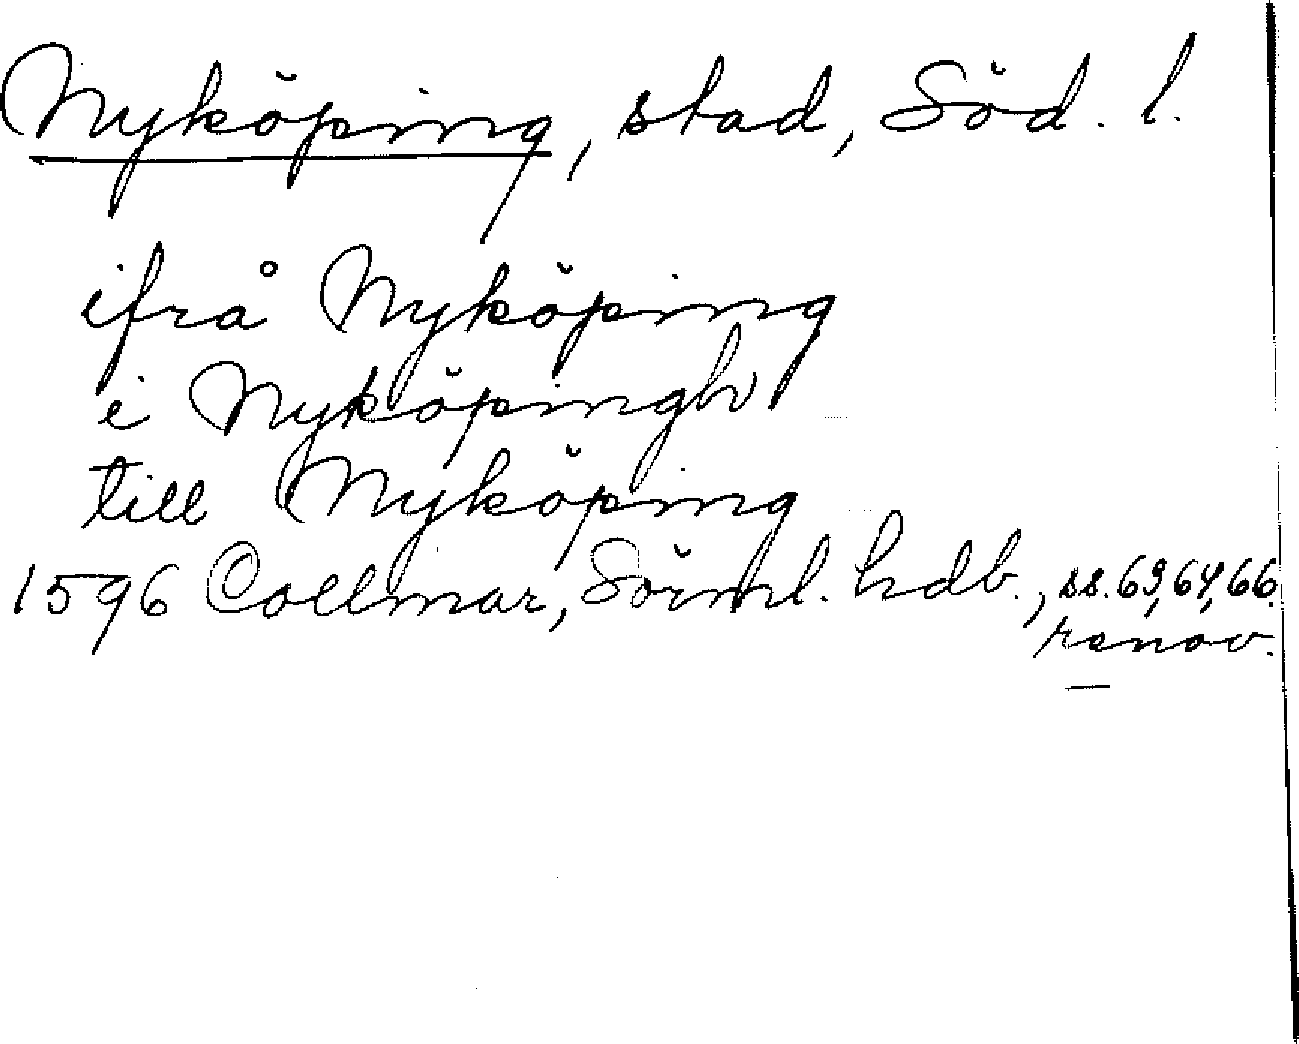 Nyköping, stad, Söd. l.
ifrå Nyköping
i Nyköpingh
till Nyköping
1596 Collmar, Sörml. hdb., ss. 63, 64, 66.
renov.